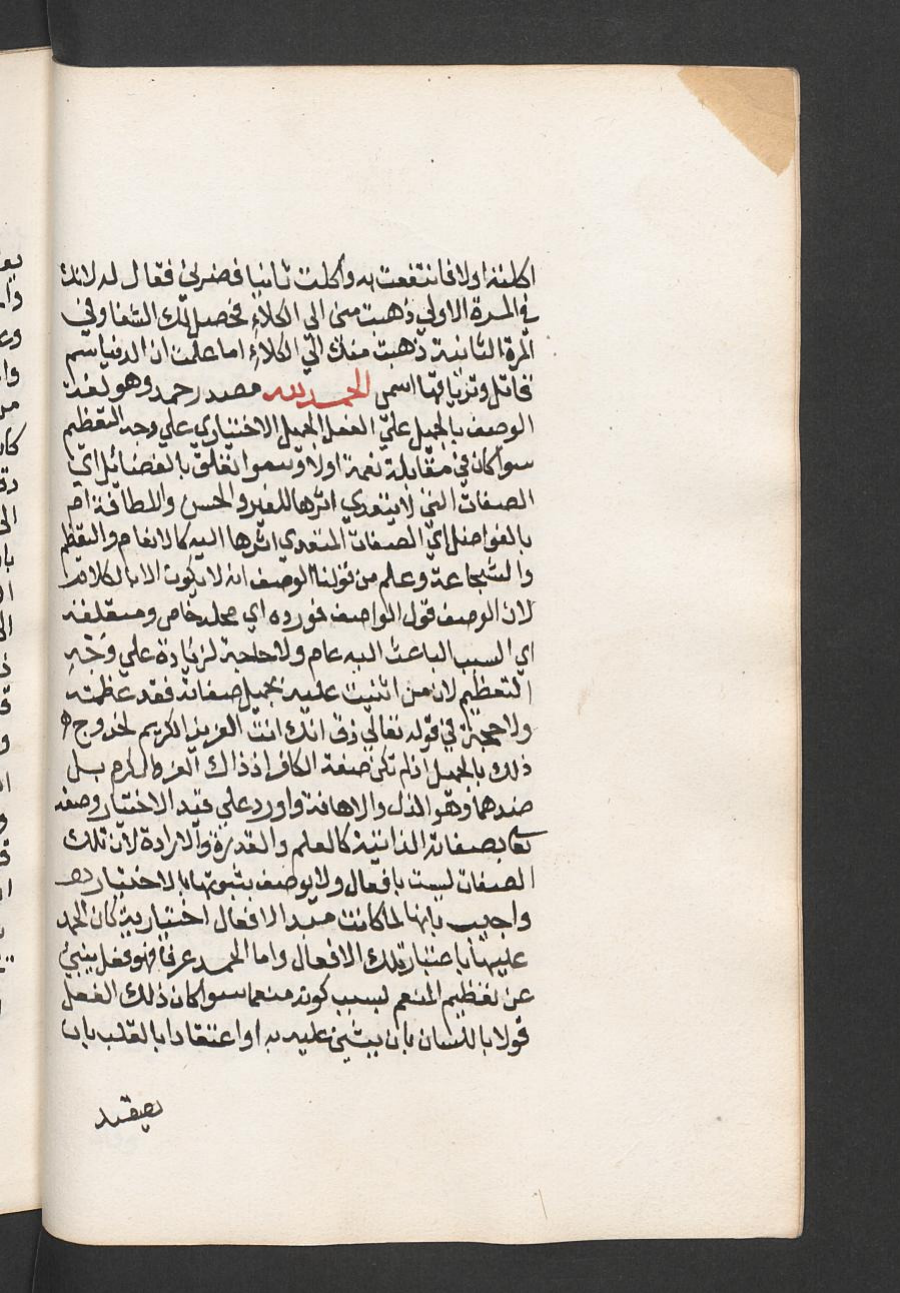 اكلته اولا فانتفعت به واكلت ثانيا فضرني فقال له لانك
في المرة الاولي ذهبت مني الي الكلاء فحصل لك الشفا وفي
المرة الثانية ذهبت منك الي الكلاء اما علمت ان الدنيا سم
قاتل وترياقها اسمي الحمد لله مصدر حمد وهو لغة
الوصف بالجميل علي الفعل الجميل الاختياري علي وجه التعظيم
سوا كان في مقابلة نعمة اولا وسوا تعلق بالفضائل اي
الصفات التي لا يتعدي اثرها للغير والحسن واللطافة ام
بالفواضل اي الصفات المتعدي اثرها اليه كالانعام والتعظيم
والشجاعة وعلم من قولنا الوصف انه لا يكون الا بالكلام
لان الوصف قول الواصف فورده اي محله خاص ومتعلقه
اي السبب الباعث اليه عام ولا حاجة لزيادة علي وجه
التعظيم لان من اثنيت عليه بجميل صفاته فقد عظمته
ولا حجة في قوله تعالي ذق انك انت العزيز الكريم لخروج
ذلك بالجميل اذ لم تكن صفة الكافر اذ ذاك العز والكرم بل
ضدهما وهو الذل والاهانة واورد علي قيد الاختيار وصفه
تعا بصفاته الذاتية كالعلم والقدرة والارادة لان تلك
الصفات ليست بافعال ولا يوصف بثبوتها بالاختيار
واجيب بانها لما كانت مبد الافعال اختيارية كان الحمد
عليها باعتبار تلك الافعال واما الحمد عرفا فهو فعل ينبئ
عن تعظيم المنعم بسبب كونه منعما سوا كان ذلك الفعل
قولا باللسان بان يثني عليه به او اعتقادا بالقلب بان
يعتقد